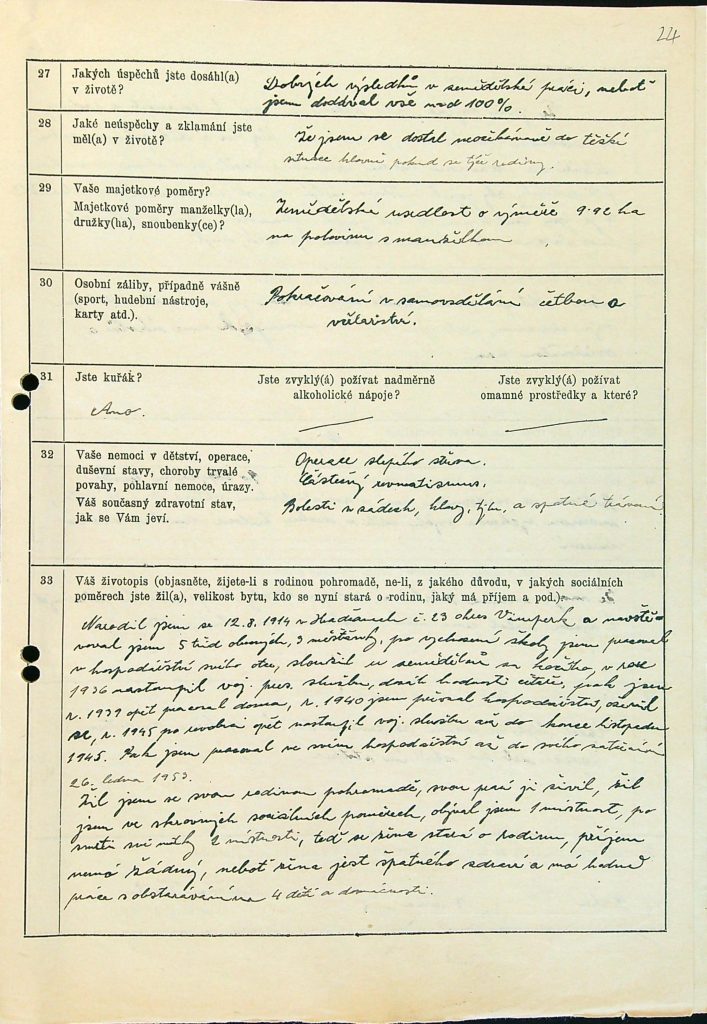 24
27 Jakých úspěchů jste dosáhl(a)
v životě?
Dobrých výsledků v zemědětské práci, neboť
jsem doddával vše nad 100%.
28 Jaké neúspěchy a zklamání jste
měl(a) v životě?
Že jsem se dostal neočekávaně do těžké
situace hlavně pokud se týče rodiny.
29 Vaše majetkové poměry?
Majetkové poměry manželky(la),
družky(ha), snoubenky(ce)?
Zemědětská usedlost o výměře 9.92 ha
na polovinu s manželkou
30 Osobní záliby, případně vášně
(sport, hudební nástroje,
karty atd.).
Pokračování v samovzdělání četbou a
včelařství.
31 Jste kuřák?
Ano.
Jste zvyklý(á) požívat nadměrně
alkoholické nápoje?
Jste zvyklý(á) požívat
omamné prostředky a které?
32 Vaše nemoci v dětství, operace,
duševní stavy, choroby trvalé
povahy, pohlavní nemoce, úrazy.
Váš současný zdravotní stav,
jak se Vám jeví.
Operace slepého střeva.
Částečný revmatismus.
Bolesti v zádech, hlavy, týlu, a špatné trávení
33 Váš životopis (objasněte, žijete-li s rodinou pohromadě, ne-li, z jakého důvodu, v jakých sociálních
poměrech jste žil(a), velikost bytu, kdo se nyní stará o rodinu, jaký má příjem a pod.).
Narodil jsem se 12.8.1914 v č. 23 okres Vimperk a navště-
voval jsem 5 tříd obecných, 3 měšťanky, po vychození školy jsem pracoval
v hospodářství svého otce, sloužil u zemědělců za kočího, v roce
1936 nastoupil voj. pres. službu, hodnosti četaře, pak jsem
r. 1939 opět pracoval doma, r. 1940 jsem převzal hospodářství, oženil
se, r. 1945 po revoluci opět nastoupil voj. službu až do konce listopadu
1945. Pak jsem pracoval ve svém hospodářství až do svého zatčení
26. ledna 1953.
Žil jsem se svou rodinou pohromadě, svou prací ji živil, žil
jsem ve skrovných sociálních poměrech, obýval jsem 1 místnost, po
smrti mé matky 2 místnosti, teď se žena stará o rodinu, příjem
nemá žádný, neboť žena jest špatného zdraví a má hodně
práce s obstaráváním 4 dětí a domácnosti.